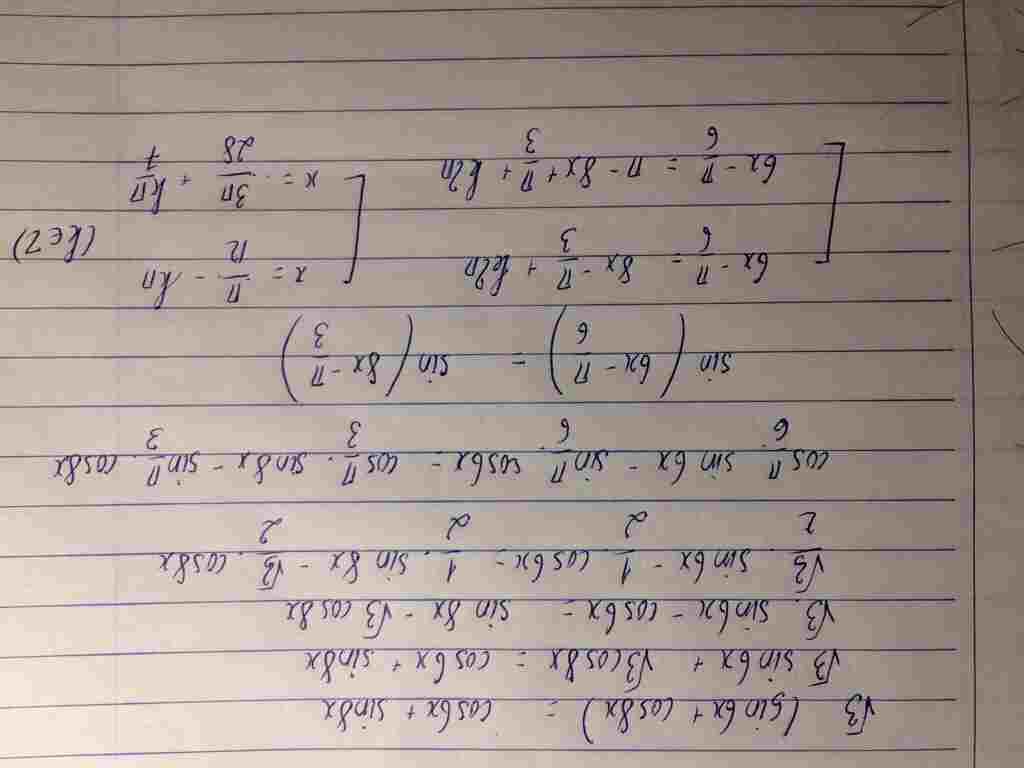 √3 (sin6x + cos8x) = cos6x + sin8x
√3 sin6x + √3cos8x = cos6x + sin8x
√3. sin6x - cos6x = sin8x - √3 cos8x
√3/2 . sin6x - 1/2 . cos6x = 1/2 . sin8x - √3/2 . cos8x
cos π/6 . sin6x - sin π/6 . cos6x = cos π/3 . sin8x - sin π/3 . cos8x
sin (6x - π/6) = sin (8x - π/3)
[ 6x - π/6 = 8x - π/3 + k2π [ x = π/12 - kπ (k∈Z)
6x - π/6 = π - 8x + π/3 + k2π x = 3π/28 + kπ/7